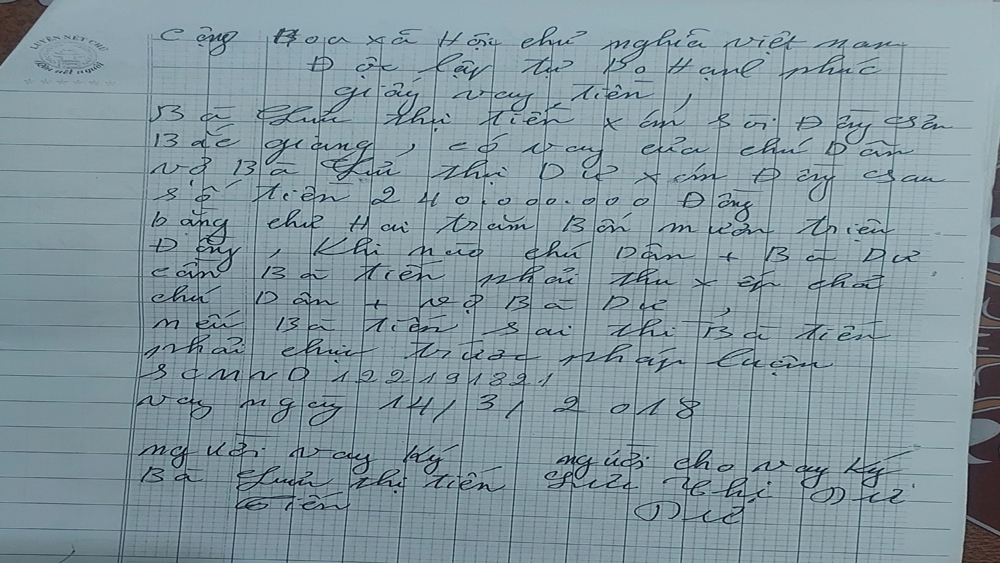 LUYỆN NÉT CHỮ
RÈN NẾT NGƯỜI
Cộng Hoa xã Hôi chử nghĩa việt nam
Độc lập tự Do Hanh phúc
giấy vay tiền,
Bà Lưu thị tiến xóm Sời Đông
Bắc giang, có vay của chú Dần
vợ Bà Lưu thị Dư xóm Đông
số tiền 240.000.000 Đồng
bằng chử Hai trăm Bốn mươn triệu
Đồng, Khi nào chú Dần + Bà Dư
cần Bà tiến phải thu xếp chả
chú Dần + vợ Bà Dư,
nếu Bà tiến sai thì Bà tiến
phải chịu trước pháp luận
SCMND 122191821
vay ngay 14/3/2018
người vay Ký người cho vay Ký
Bà Lưu thị tiến Lưu thị Dư
tiến Dư